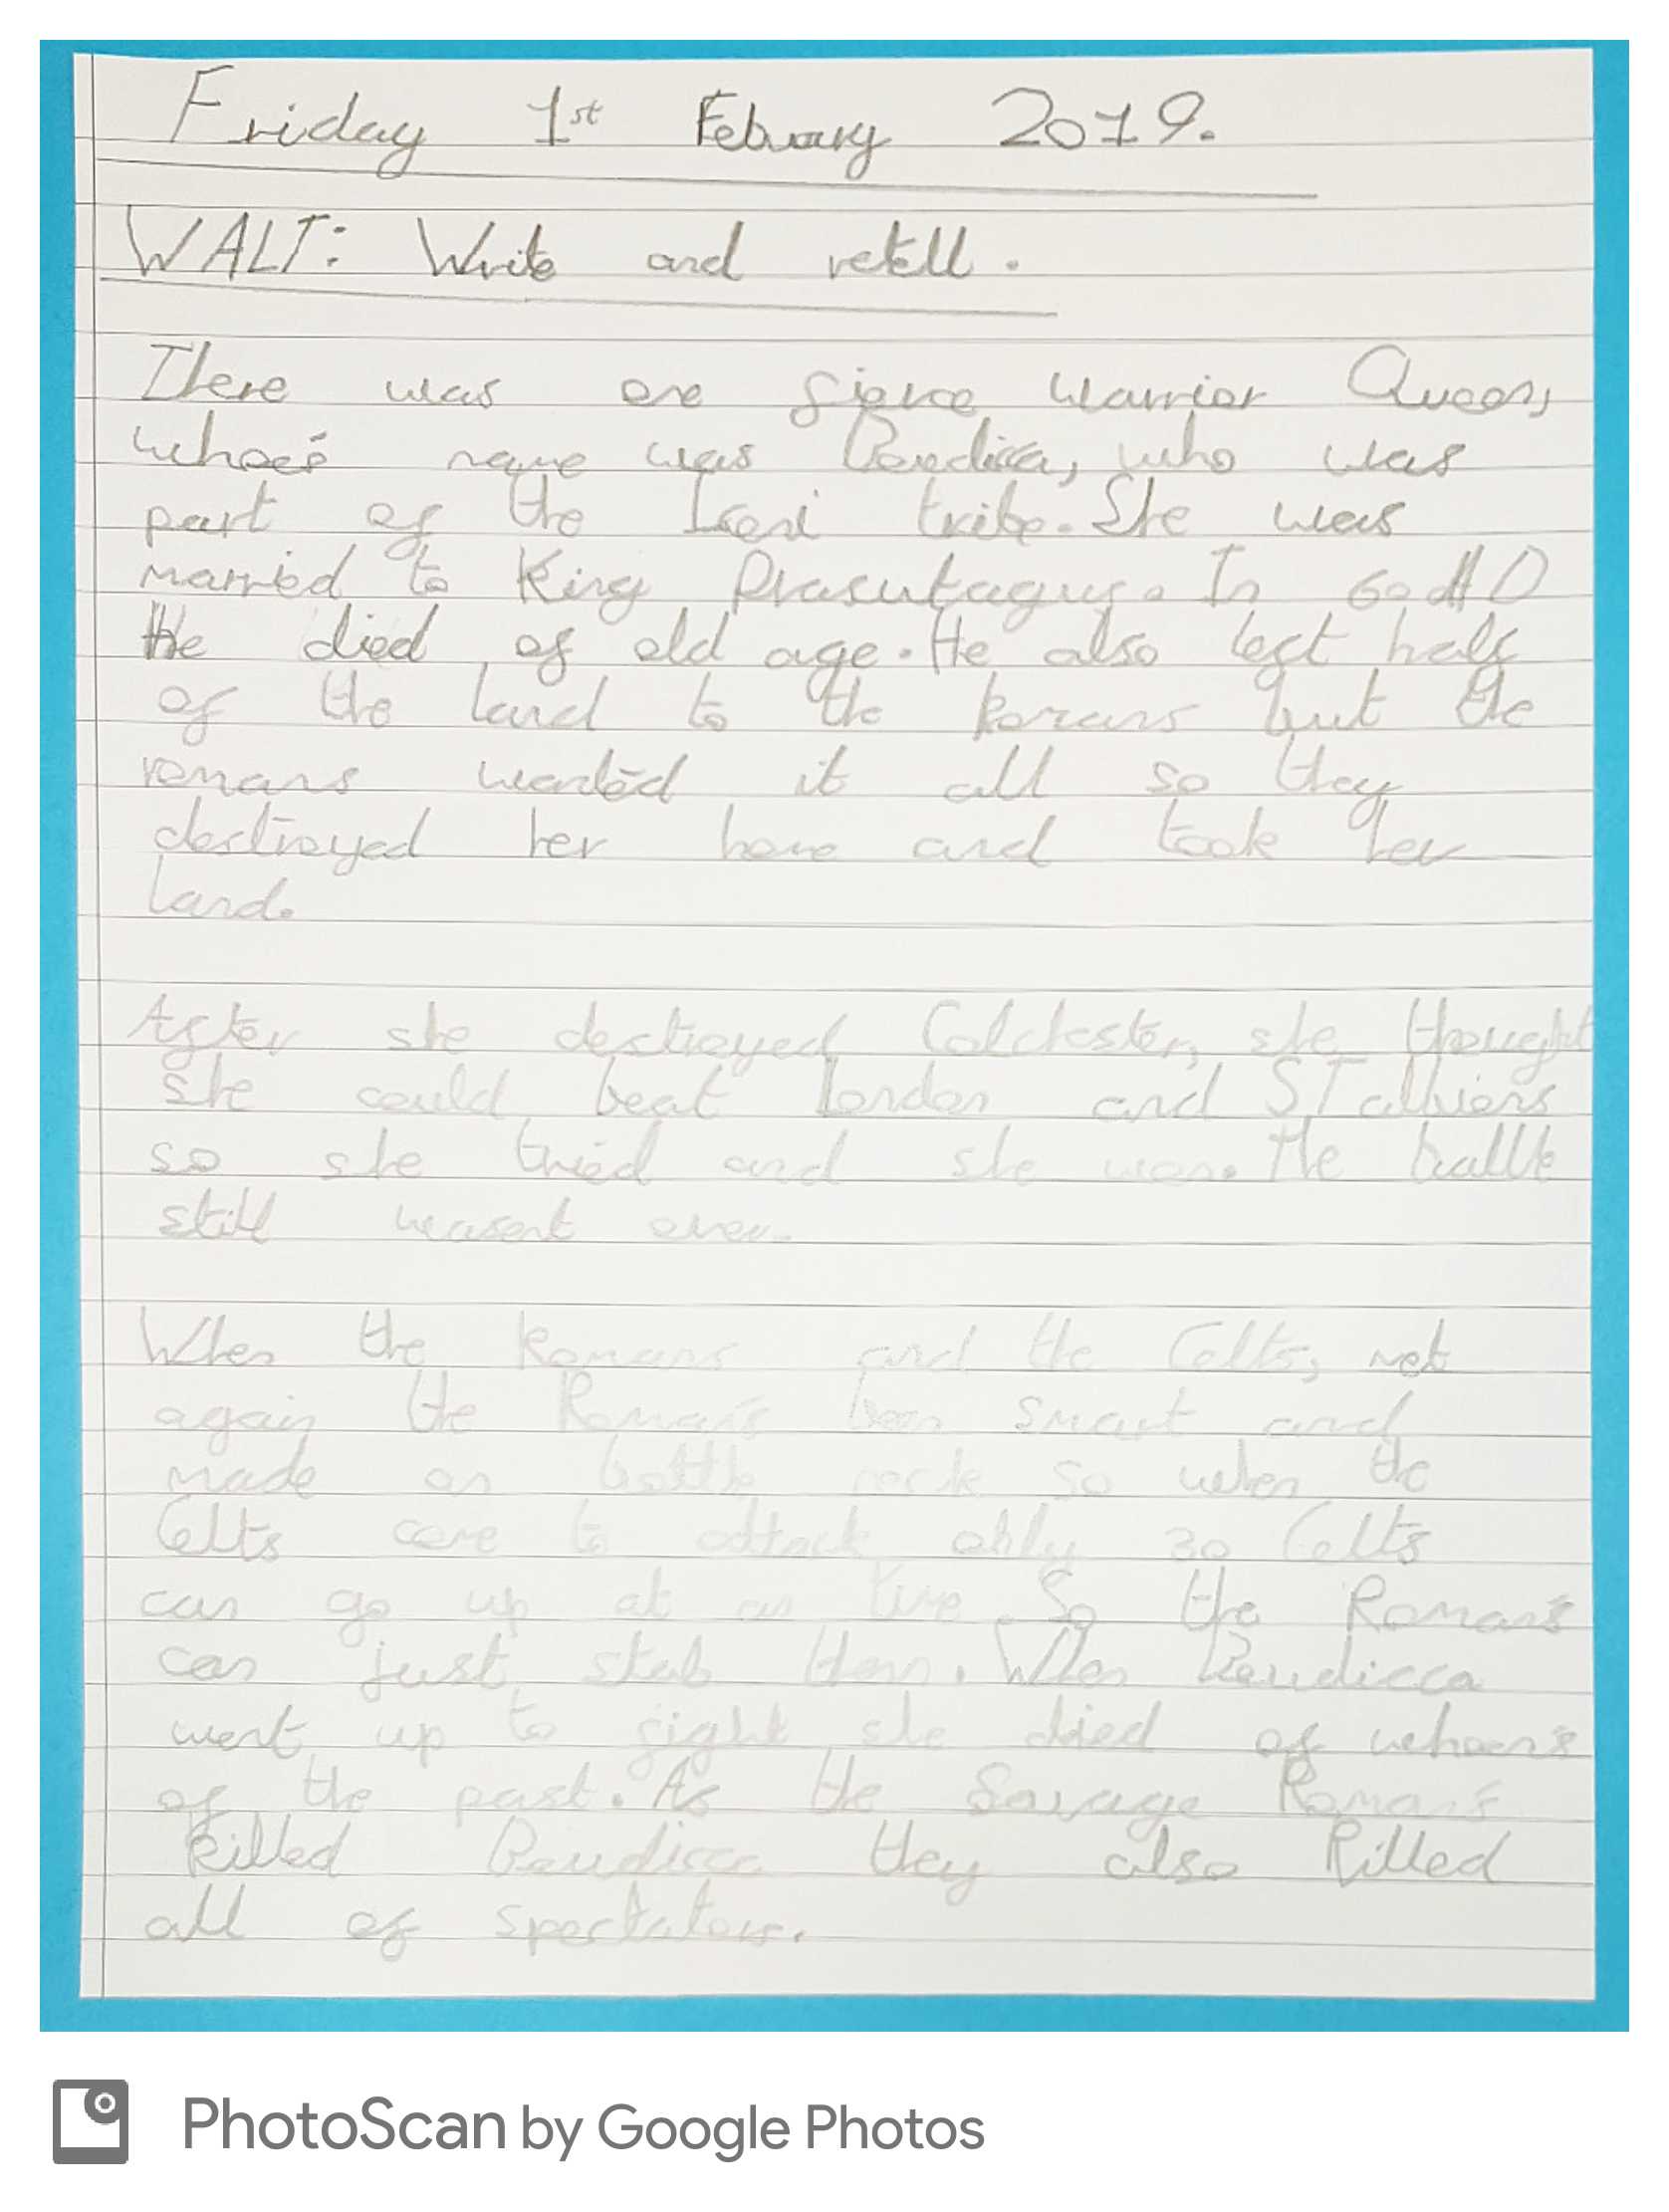 Friday 1st Febuary 2019.
WALT: Write and retell.
There was one fierce warrior Queen,
whoes name was Boudicca, who was
part of the Iceni tribe. She was
married to King Prasutagus. In 60 AD
He died of old age. He also left half
of the land to the Romans but the
romans wanted it all so they
destroyed her home and took her
land.
After she destroyed Colchester, she thought
she could beat London and ST albiens
so she tried and she won. The battle
still wasent over.
When the Romans and the Celts, met
again the Romans been smart and
made an bottle neck so when the
Celts came to attack only 30 Celts
can go up at an time. So the Romans
can just stab them. When Boudicca
went up to fight she died of
of the past. As the Savage Romans
killed Boudicca they also killed
all of spectators.
PhotoScan by Google Photos